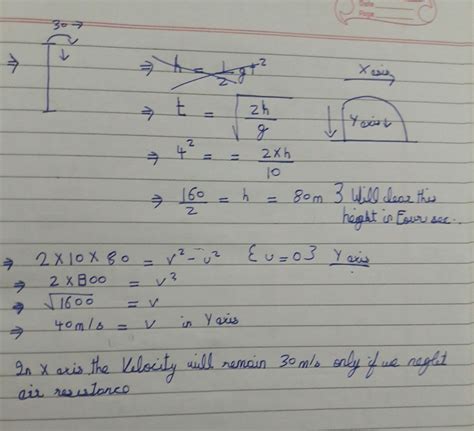 Date
Page
30→
⇒ ⇒ h = 1/2 gt² X axis
⇒ t = √(2h/g) Y axis
⇒ 4² = = 2×h/10
⇒ 160/2 = h = 80m } Will clear this
height in Four sec..
⇒ 2×10×80 = v² - u² {u=0} Y axis
⇒ 2×800 = v²
⇒ √1600 = v
⇒ 40m/s = v in Y axis
In X axis the Velocity will remain 30 m/s only if we neglet
air resistance